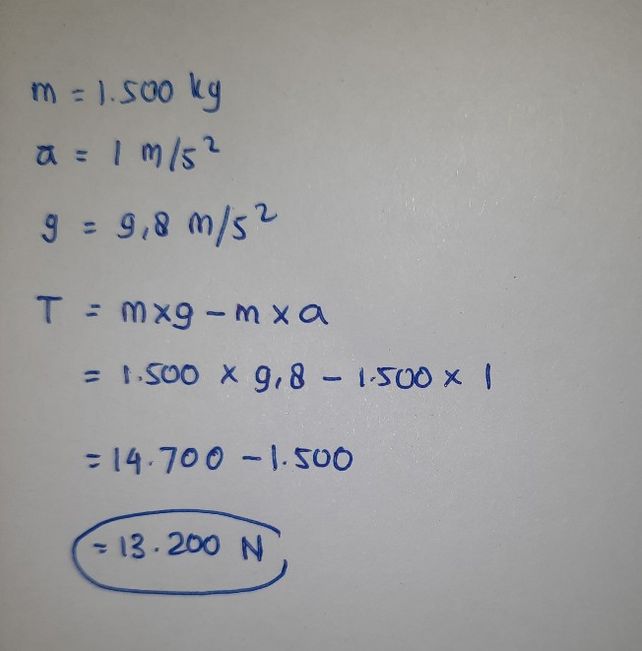 m = 1.500 kg
a = 1 m/s²
g = 9,8 m/s²
T = mxg - m x a
= 1.500 x 9,8 - 1.500 x 1
= 14.700 - 1.500
= 13.200 N